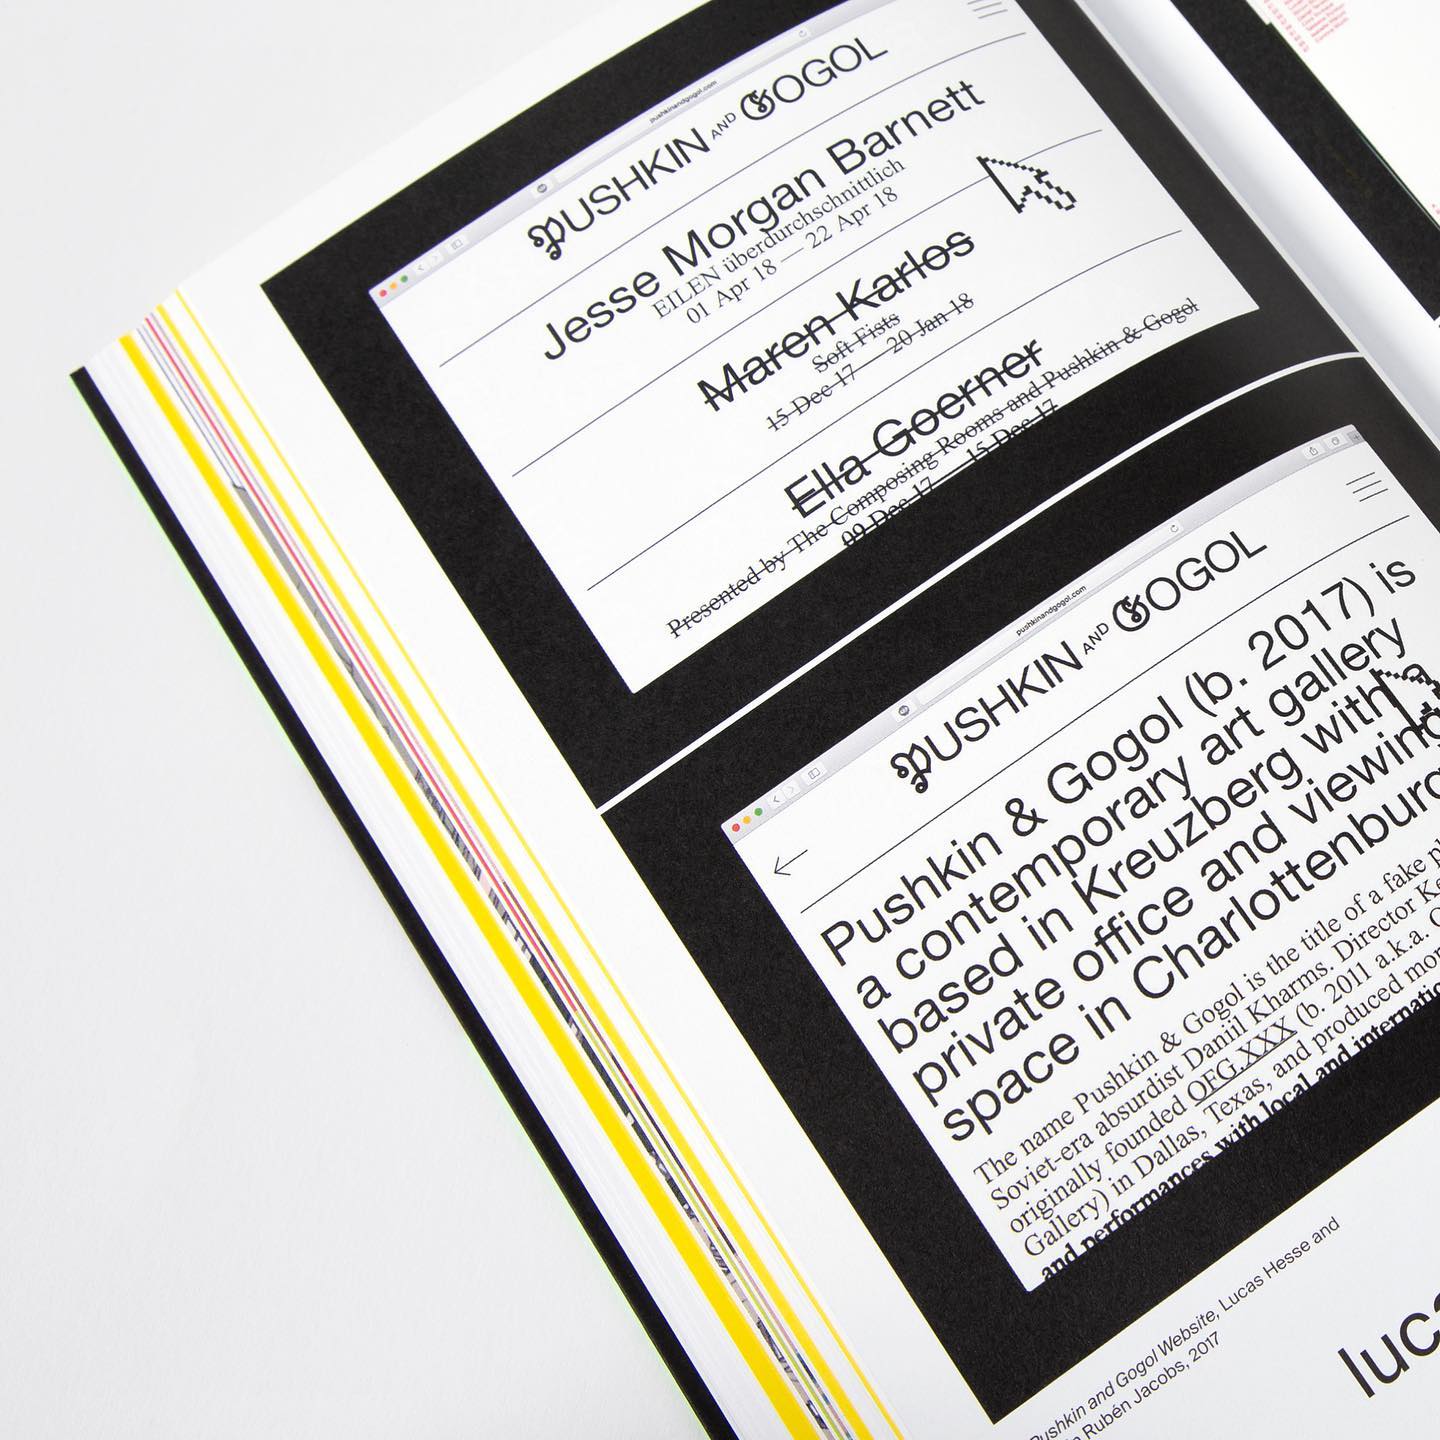 pushkinandgogol.com
PUSHKIN AND GOGOL
Jesse Morgan Barnett
EILEN überdurchschnittlich
01 Apr 18 — 22 Apr 18
Maren Karlos
Soft Fists
15 Dec 17 — 20 Jan 18
Ella Goerner
Presented by The Composing Rooms and Pushkin & Gogol
09 Dec 17 — 15 Dec 17
pushkinandgogol.com
PUSHKIN AND GOGOL
Pushkin & Gogol (b. 2017) is
a contemporary art gallery
based in Kreuzberg with
private office and viewing
space in Charlottenburg
The name Pushkin & Gogol is the title of a fake
Soviet-era absurdist Daniil Kharms. Director
originally founded OFG.XXX (b. 2011 a.k.a.
Gallery) in Dallas, Texas, and produced
and performances with local and
Pushkin and Gogol Website, Lucas Hesse and
Rubén Jacobs, 2017